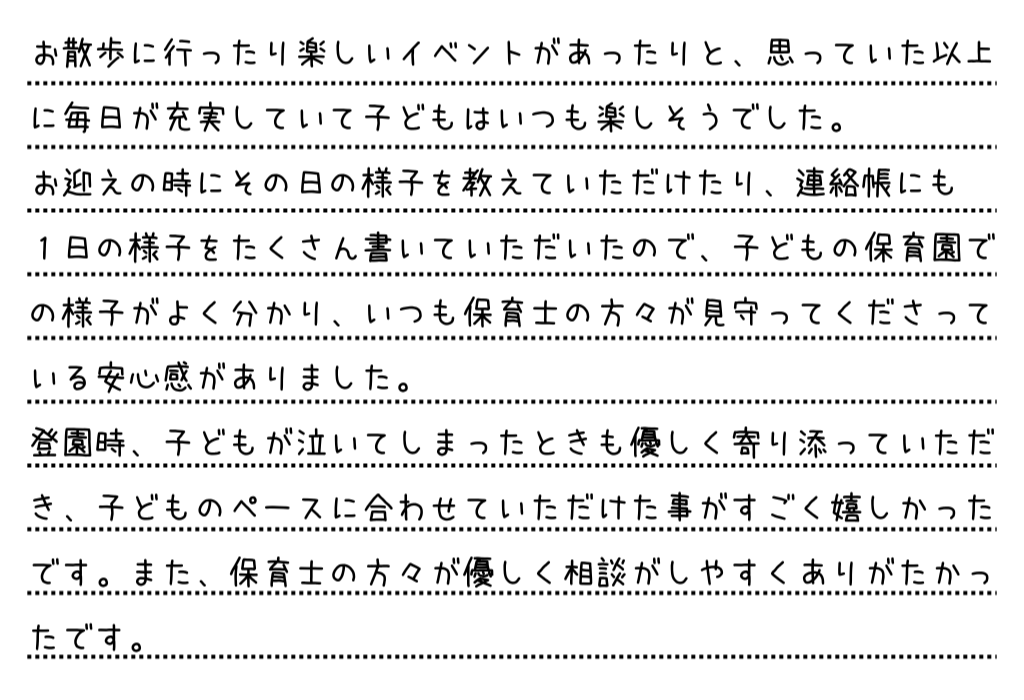 お散歩に行ったり楽しいイベントがあったりと、思っていた以上
に毎日が充実していて子どもはいつも楽しそうでした。
お迎えの時にその日の様子を教えていただけたり、連絡帳にも
１日の様子をたくさん書いていただいたので、子どもの保育園で
の様子がよく分かり、いつも保育士の方々が見守ってくださって
いる安心感がありました。
登園時、子どもが泣いてしまったときも優しく寄り添っていただ
き、子どものペースに合わせていただけた事がすごく嬉しかった
です。また、保育士の方々が優しく相談がしやすくありがたかっ
たです。